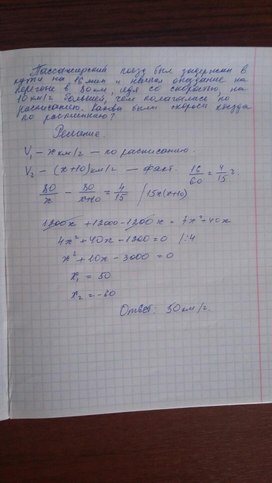 Пассажирский поезд был задержан в
пути на 16 мин и нагнал опоздание на
перегоне в 80 км, идя со скоростью, на
10 км/ч большей, чем полагалось по
расписанию. Какова была скорость поезда
по расписанию?
Решение
V₁ – x км/ч – по расписанию.
V₂ – (x+10) км/ч – факт. 16/60 = 4/15 ч.
80/x – 80/(x+10) = 4/15 /15x(x+10)
1200x + 12000 – 1200x = 4x² + 40x
4x² + 40x – 1200 = 0 /:4
x² + 10x – 3000 = 0
x₁ = 50
x₂ = –60
Ответ: 50 км/ч